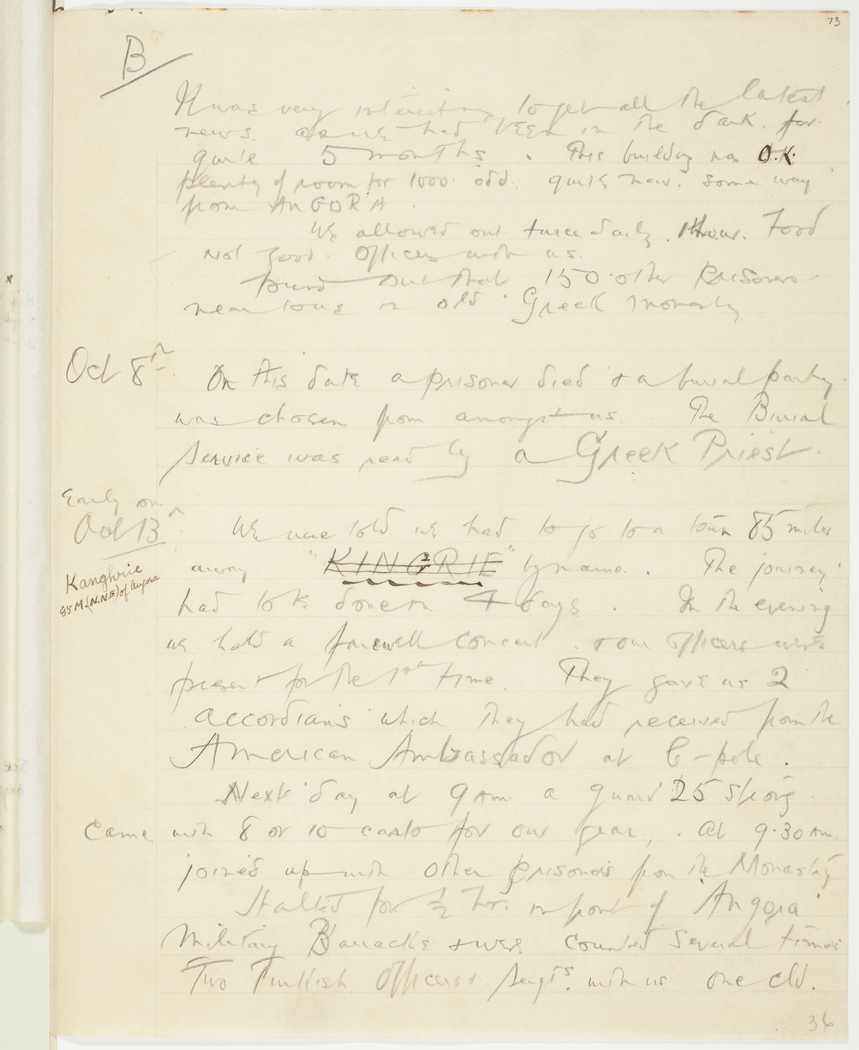 73
B
It was very interesting to get all the latest
news. as we had been in the dark. for
quite 5 months. This building was O.K.
plenty of room for 1000 odd. quite new. some way
from ANGORA.
We allowed out twice daily. 1 Hour. Food
not good. Officers with us.
Found out that 150 other prisoners
near town in old Greek Monastry
Oct 8th On this date a prisoner died & a burial party
was chosen from amongst us. The Burial
Service was read by a Greek Priest.
Early on
Oct 13th We were told we had to go to a town 85 miles
away "KINGRIE" by name. The journey
Kanghrie
85 M (N.N.E) of Angora
had to be done in 4 days. In the evening
we held a farewell concert. & our officers were
present for the 1st time. They gave us 2
accordians which they had received from the
American Ambassador at C-pole.
Next day at 9 am a guard 25 strong
Came with 8 or 10 carts for our gear. At 9.30 am
joined up with other prisoners from the Monastry
Halted for ½ hr. in front of Angora
Military Barracks & were counted several times
Two Turkish Officers & Sergts. with us one cld.
36